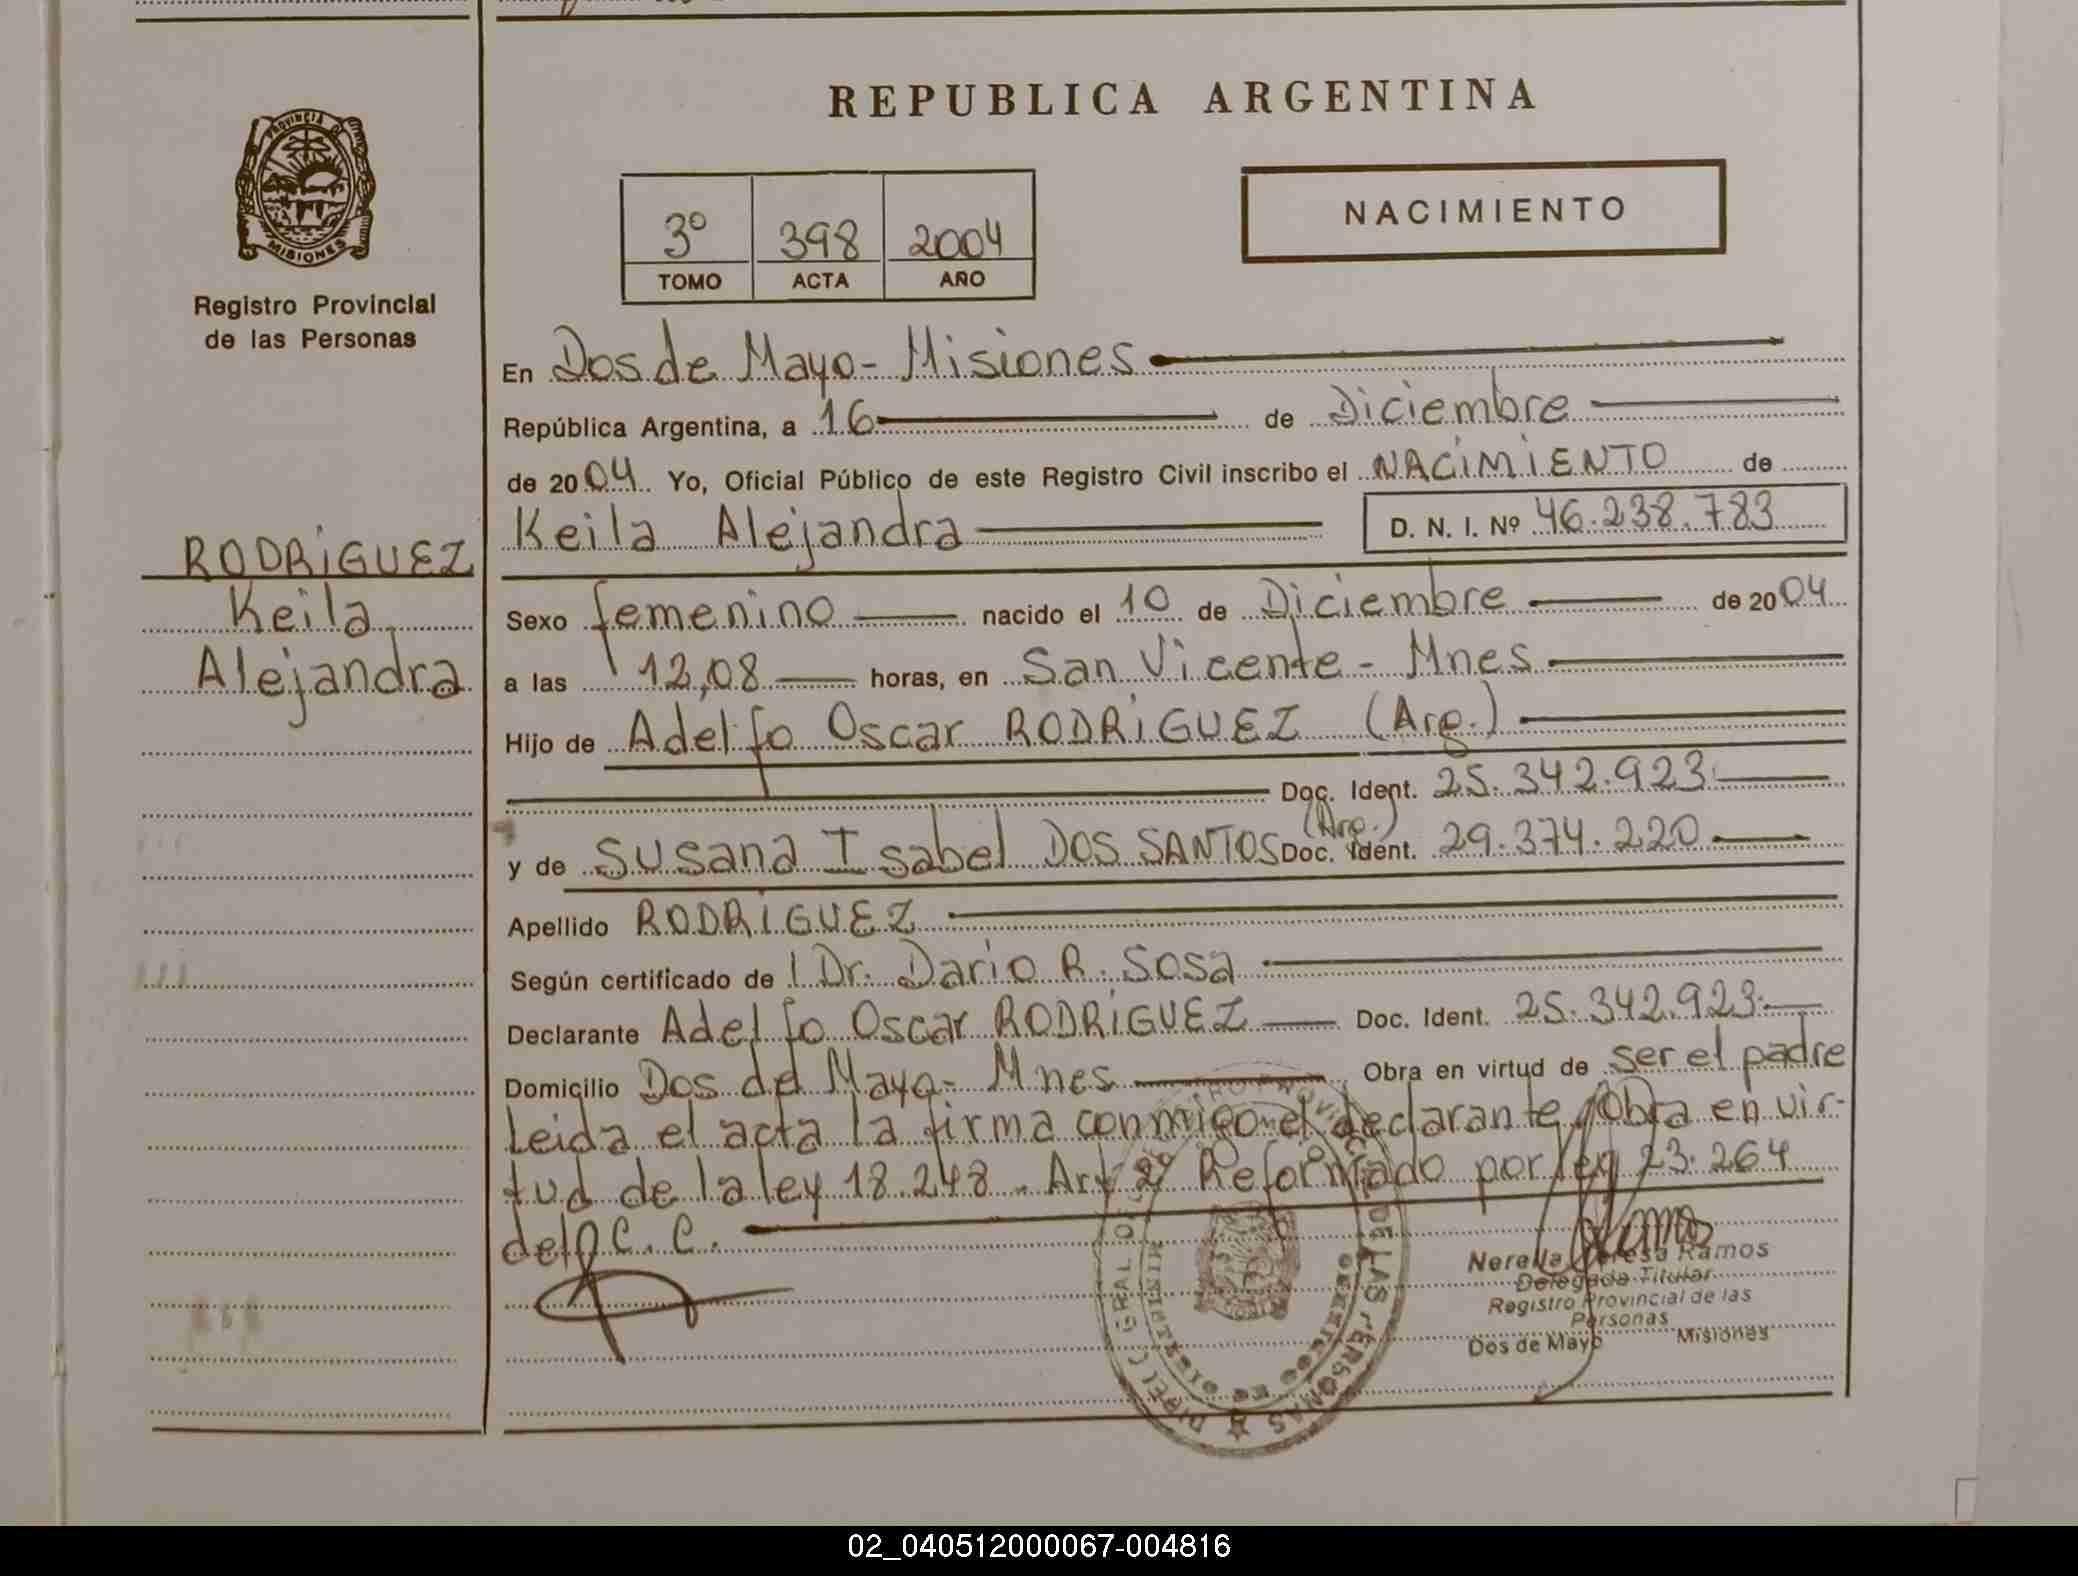 REPUBLICA ARGENTINA
PROVINCIA DE
MISIONES
Registro Provincial
de las Personas
3º 398 2004
TOMO ACTA AÑO
NACIMIENTO
En Dos de Mayo - Misiones
República Argentina, a 16 de Diciembre
de 2004 Yo, Oficial Público de este Registro Civil inscribo el NACIMIENTO de
Keila Alejandra D. N. I. Nº 46.238.783
RODRIGUEZ
Keila
Alejandra
Sexo femenino nacido el 10 de Diciembre de 2004
a las 12,08 horas, en San Vicente - Mnes
Hijo de Adelfo Oscar RODRIGUEZ (Arg.)
Doc. Ident. 25.342.923
(Arg.)
y de Susana Isabel DOS SANTOS Doc. Ident. 29.374.220
Apellido RODRIGUEZ
Según certificado de Dr. Dario R. Sosa
Declarante Adelfo Oscar RODRIGUEZ Doc. Ident. 25.342.923
Domicilio Dos de Mayo - Mnes Obra en virtud de ser el padre
Leida el acta la firma conmigo el declarante Obra en vir-
tud de la ley 18.248. Art 2º Reformado por ley 23.264
del C. C.
Nerella Teresa Ramos
Delegada Titular
Registro Provincial de las
Personas
Dos de Mayo Misiones
DE LAS PERSONAS
02_040512000067-004816